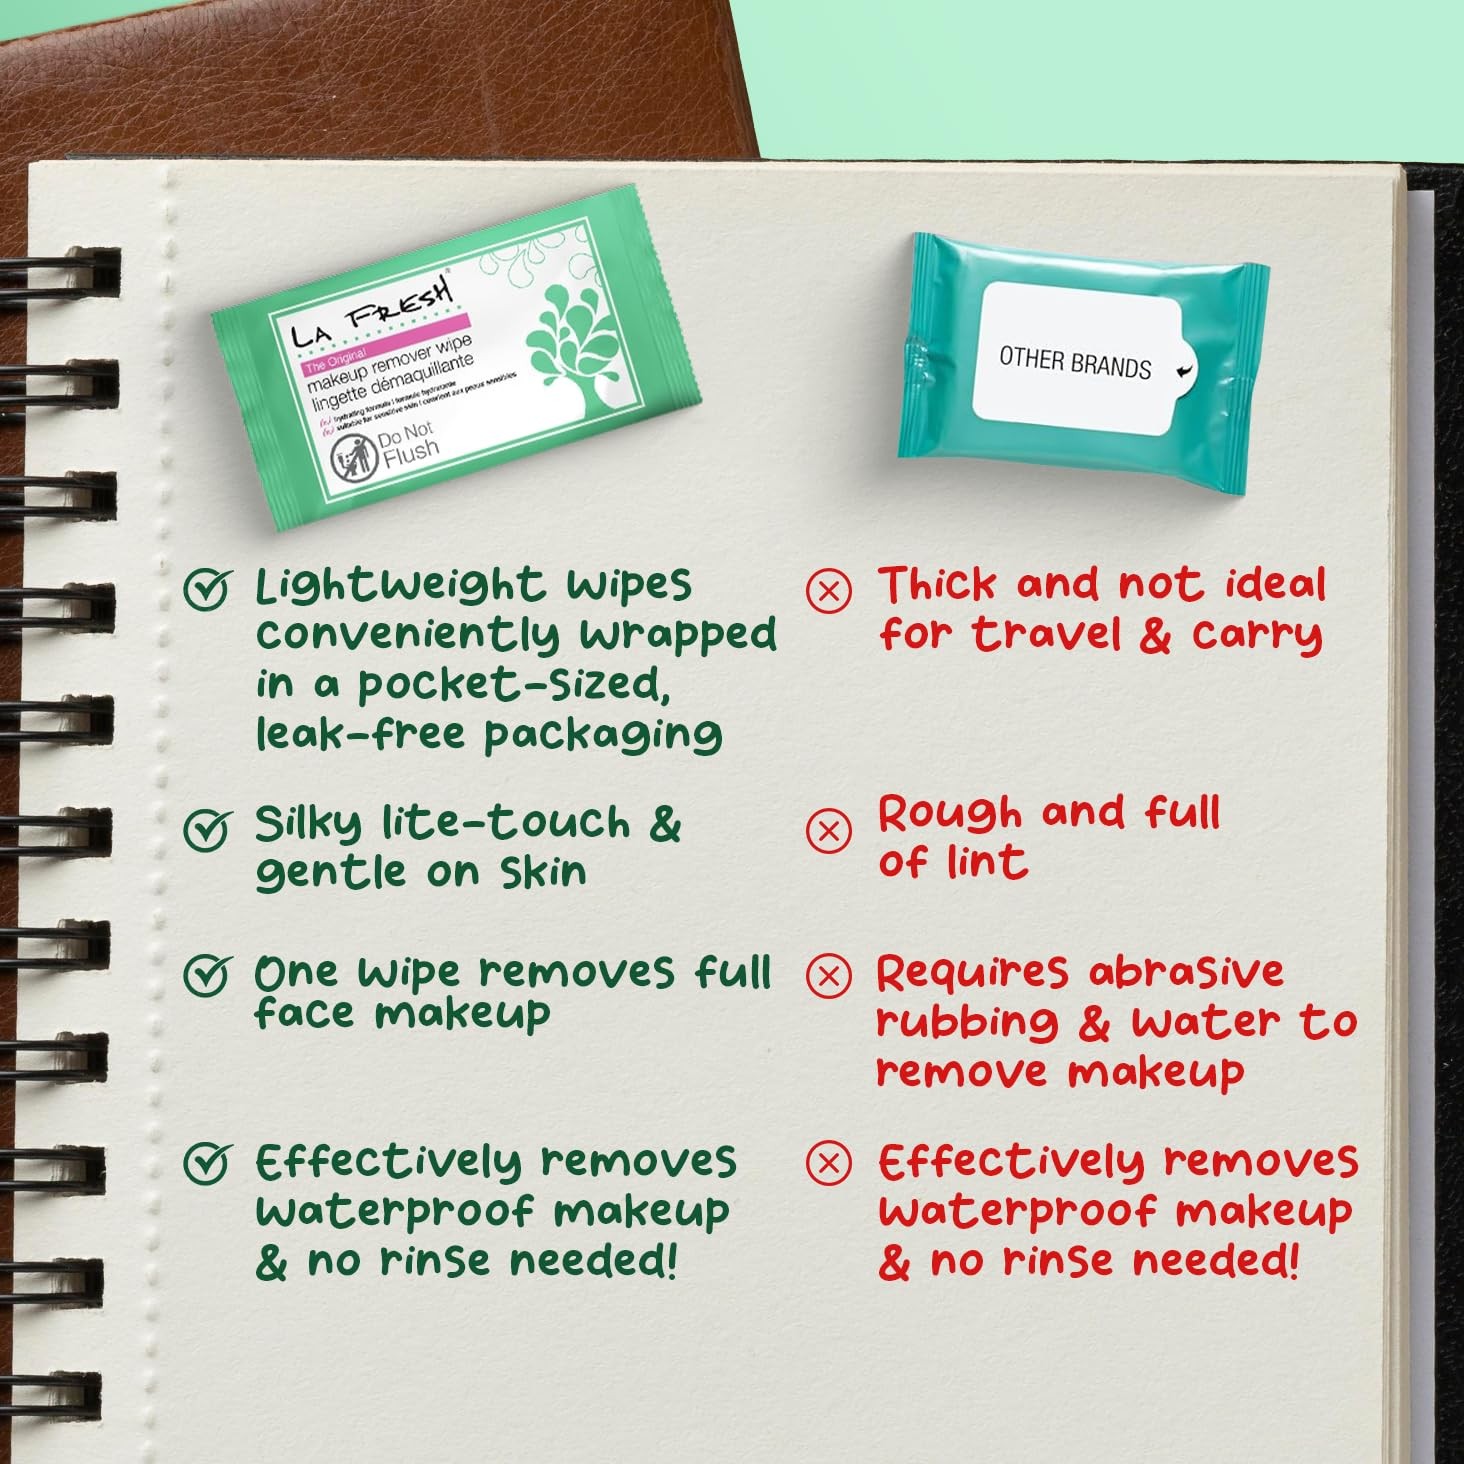 LA FRESH®
The Original
makeup remover wipe
lingette démaquillante
hydrating formula | formule hydratante
suitable for sensitive skin | convient aux peaux sensibles
Do Not
Flush
OTHER BRANDS
Lightweight wipes
conveniently wrapped
in a pocket-sized,
leak-free packaging
Thick and not ideal
for travel & carry
Silky lite-touch &
gentle on skin
Rough and full
of lint
One wipe removes full
face makeup
Requires abrasive
rubbing & water to
remove makeup
Effectively removes
waterproof makeup
& no rinse needed!
Effectively removes
waterproof makeup
& no rinse needed!